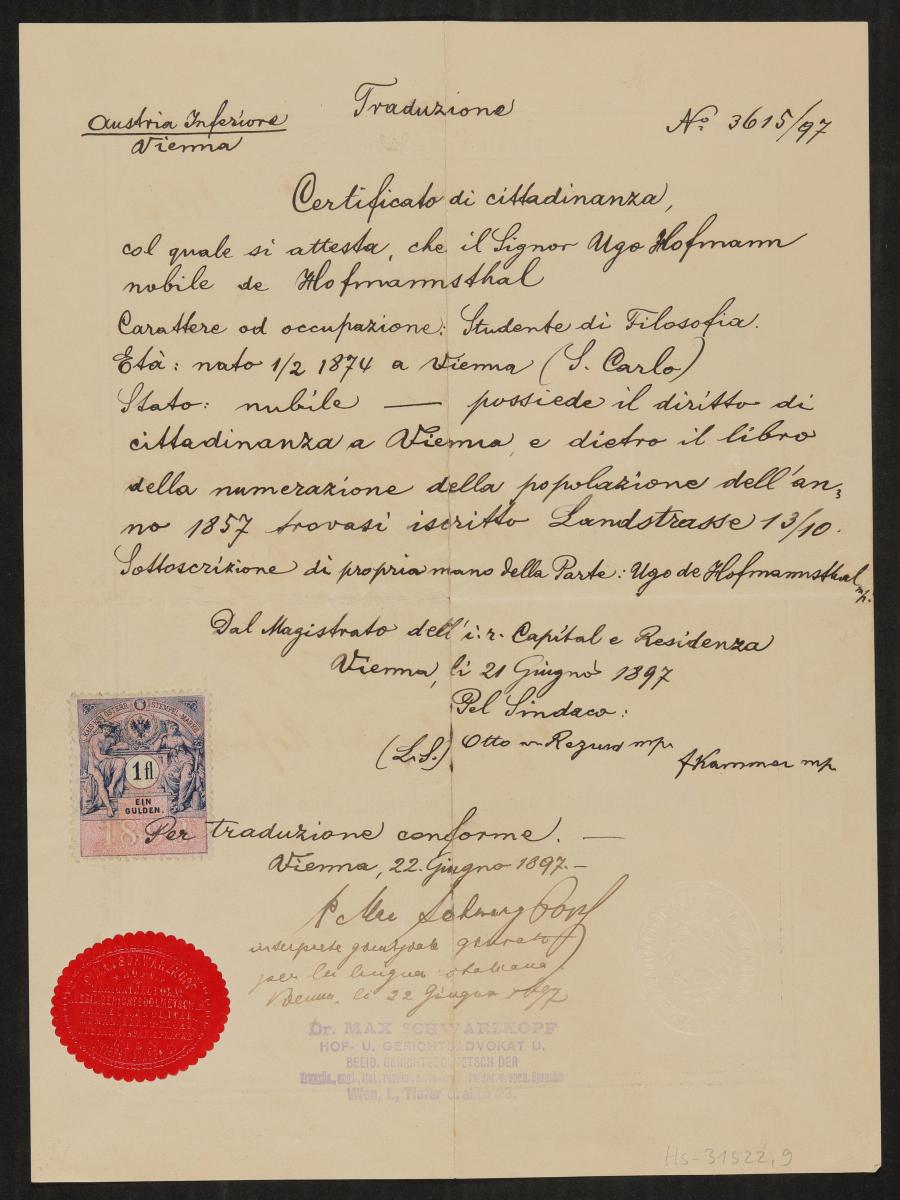 Traduzione
Austria Inferiore
Vienna
No. 3615/97
Certificato di cittadinanza,
col quale si attesta, che il Signor Ugo Hofmann
nobile de Hofmannsthal
Carattere od occupazione: Studente di Filosofia.
Età: nato 1/2 1874 a Vienna (S. Carlo)
Stato: nubile — possiede il diritto di
cittadinanza a Vienna, e dietro il libro
della numerazione della popolazione dell'an=
no 1857 trovasi iscritto Landstrasse 13/10.
Sottoscrizione di propria mano della Parte: Ugo de Hofmannsthal mp.
Dal Magistrato dell'i: r. Capital e Residenza
Vienna, li 21 Giugno 1897
Pel Sindaco:
(L.S.) Otto mp.
fKammer mp
KAIS. KÖN. ÖSTERR. STEMPEL-MARKE
1 fl
EIN
GULDEN.
Per traduzione conforme. —
Vienna, 22. Giugno 1897. –
Schwarzkopf
interprete giurato
per la lingua italiana.
Vienna, li 22 Giugno 1897
MAX SCHWARZKOPF
Dr. MAX SCHWARZKOPF
HOF- U. GERICHTSADVOKAT U.
BEEID. GERICHTSDOLMETSCH DER
französ., engl., ital., u. span. Sprache
Wien, I., Tiefer Graben
Hs-31522,9